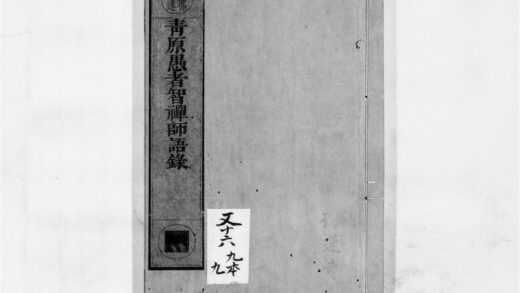 青原愚者智禪師語錄
又十六
九本
九